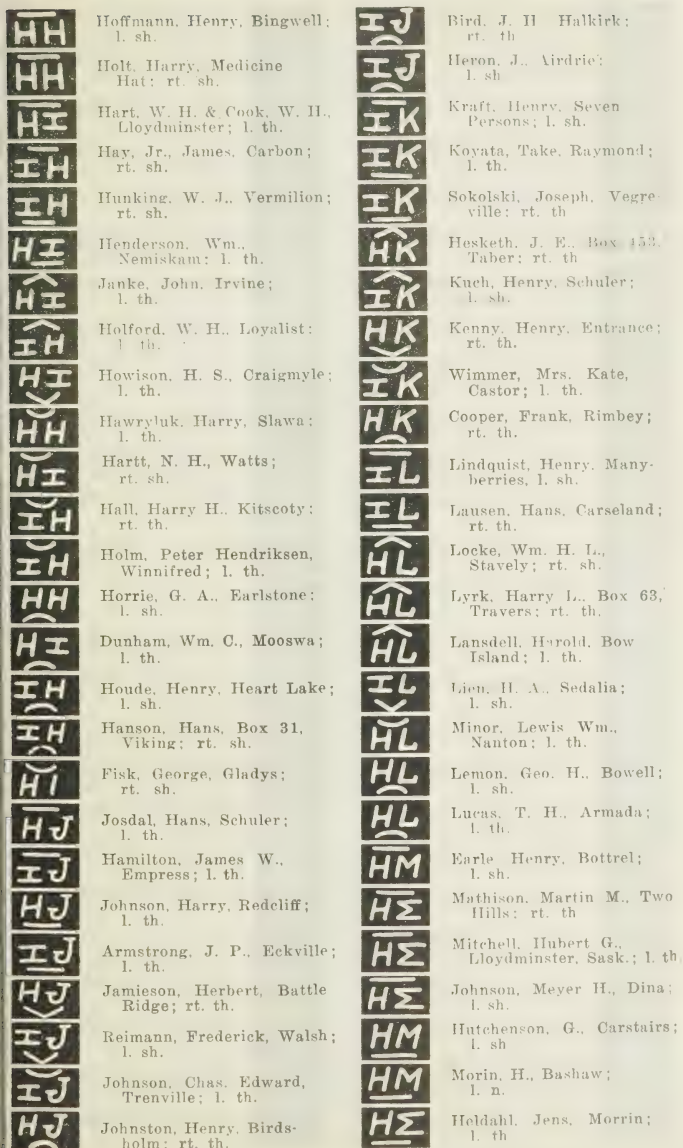 Hoffmann, Henry, Bingwell;
l. sh.
Holt, Harry, Medicine
Hat; rt. sh.
Hart, W. H. & Cook, W. H.,
Lloydminster; l. th.
Hay, Jr., James, Carbon;
rt. sh.
Hunking, W. J., Vermilion;
rt. sh.
Henderson, Wm.,
Nemiskam; l. th.
Janke, John, Irvine;
l. th.
Holford, W. H., Loyalist;
l. th.
Howison, H. S., Craigmyle;
l. th.
Hawryluk, Harry, Slawa;
l. th.
Hartt, N. H., Watts;
rt. sh.
Hall, Harry H., Kitscoty;
rt. th.
Holm, Peter Hendriksen,
Winnifred; l. th.
Horrie, G. A., Earlstone;
l. sh.
Dunham, Wm. C., Mooswa;
l. th.
Houde, Henry, Heart Lake;
l. sh.
Hanson, Hans, Box 31,
Viking; rt. sh.
Fisk, George, Gladys;
rt. sh.
Josdal, Hans, Schuler;
l. th.
Hamilton, James W.,
Empress; l. th.
Johnson, Harry, Redcliff;
l. th.
Armstrong, J. P., Eckville;
l. th.
Jamieson, Herbert, Battle
Ridge; rt. th.
Reimann, Frederick, Walsh;
l. sh.
Johnson, Chas. Edward,
Trenville; l. th.
Johnston, Henry, Birds-
holm; rt. th.
Bird, J. H Halkirk;
rt. th
Heron, J., Airdrie;
l. sh
Kraft, Henry, Seven
Persons; l. sh.
Koyata, Take, Raymond;
l. th.
Sokolski, Joseph, Vegre-
ville; rt. th
Hesketh, J. E., Box 153,
Taber; rt. th
Kuch, Henry, Schuler;
l. sh.
Kenny, Henry, Entrance;
rt. th.
Wimmer, Mrs. Kate,
Castor; l. th.
Cooper, Frank, Rimbey;
rt. th.
Lindquist, Henry, Many-
berries, l. sh.
Lausen, Hans, Carseland;
rt. th.
Locke, Wm. H. L.,
Stavely; rt. sh.
Lyrk, Harry L., Box 63,
Travers; rt. th.
Lansdell, Harold, Bow
Island; l. th.
Lien, H. A., Sedalia;
l. sh.
Minor, Lewis Wm.,
Nanton; l. th.
Lemon, Geo. H., Bowell;
l. sh.
Lucas, T. H., Armada;
l. th.
Earle Henry, Bottrel;
l. sh.
Mathison, Martin M., Two
Hills; rt. th
Mitchell, Hubert G.,
Lloydminster, Sask.; l. th.
Johnson, Meyer H., Dina;
l. sh.
Hutchenson, G., Carstairs;
l. sh
Morin, H., Bashaw;
l. n.
Holdahl, Jens, Morrin;
l. th